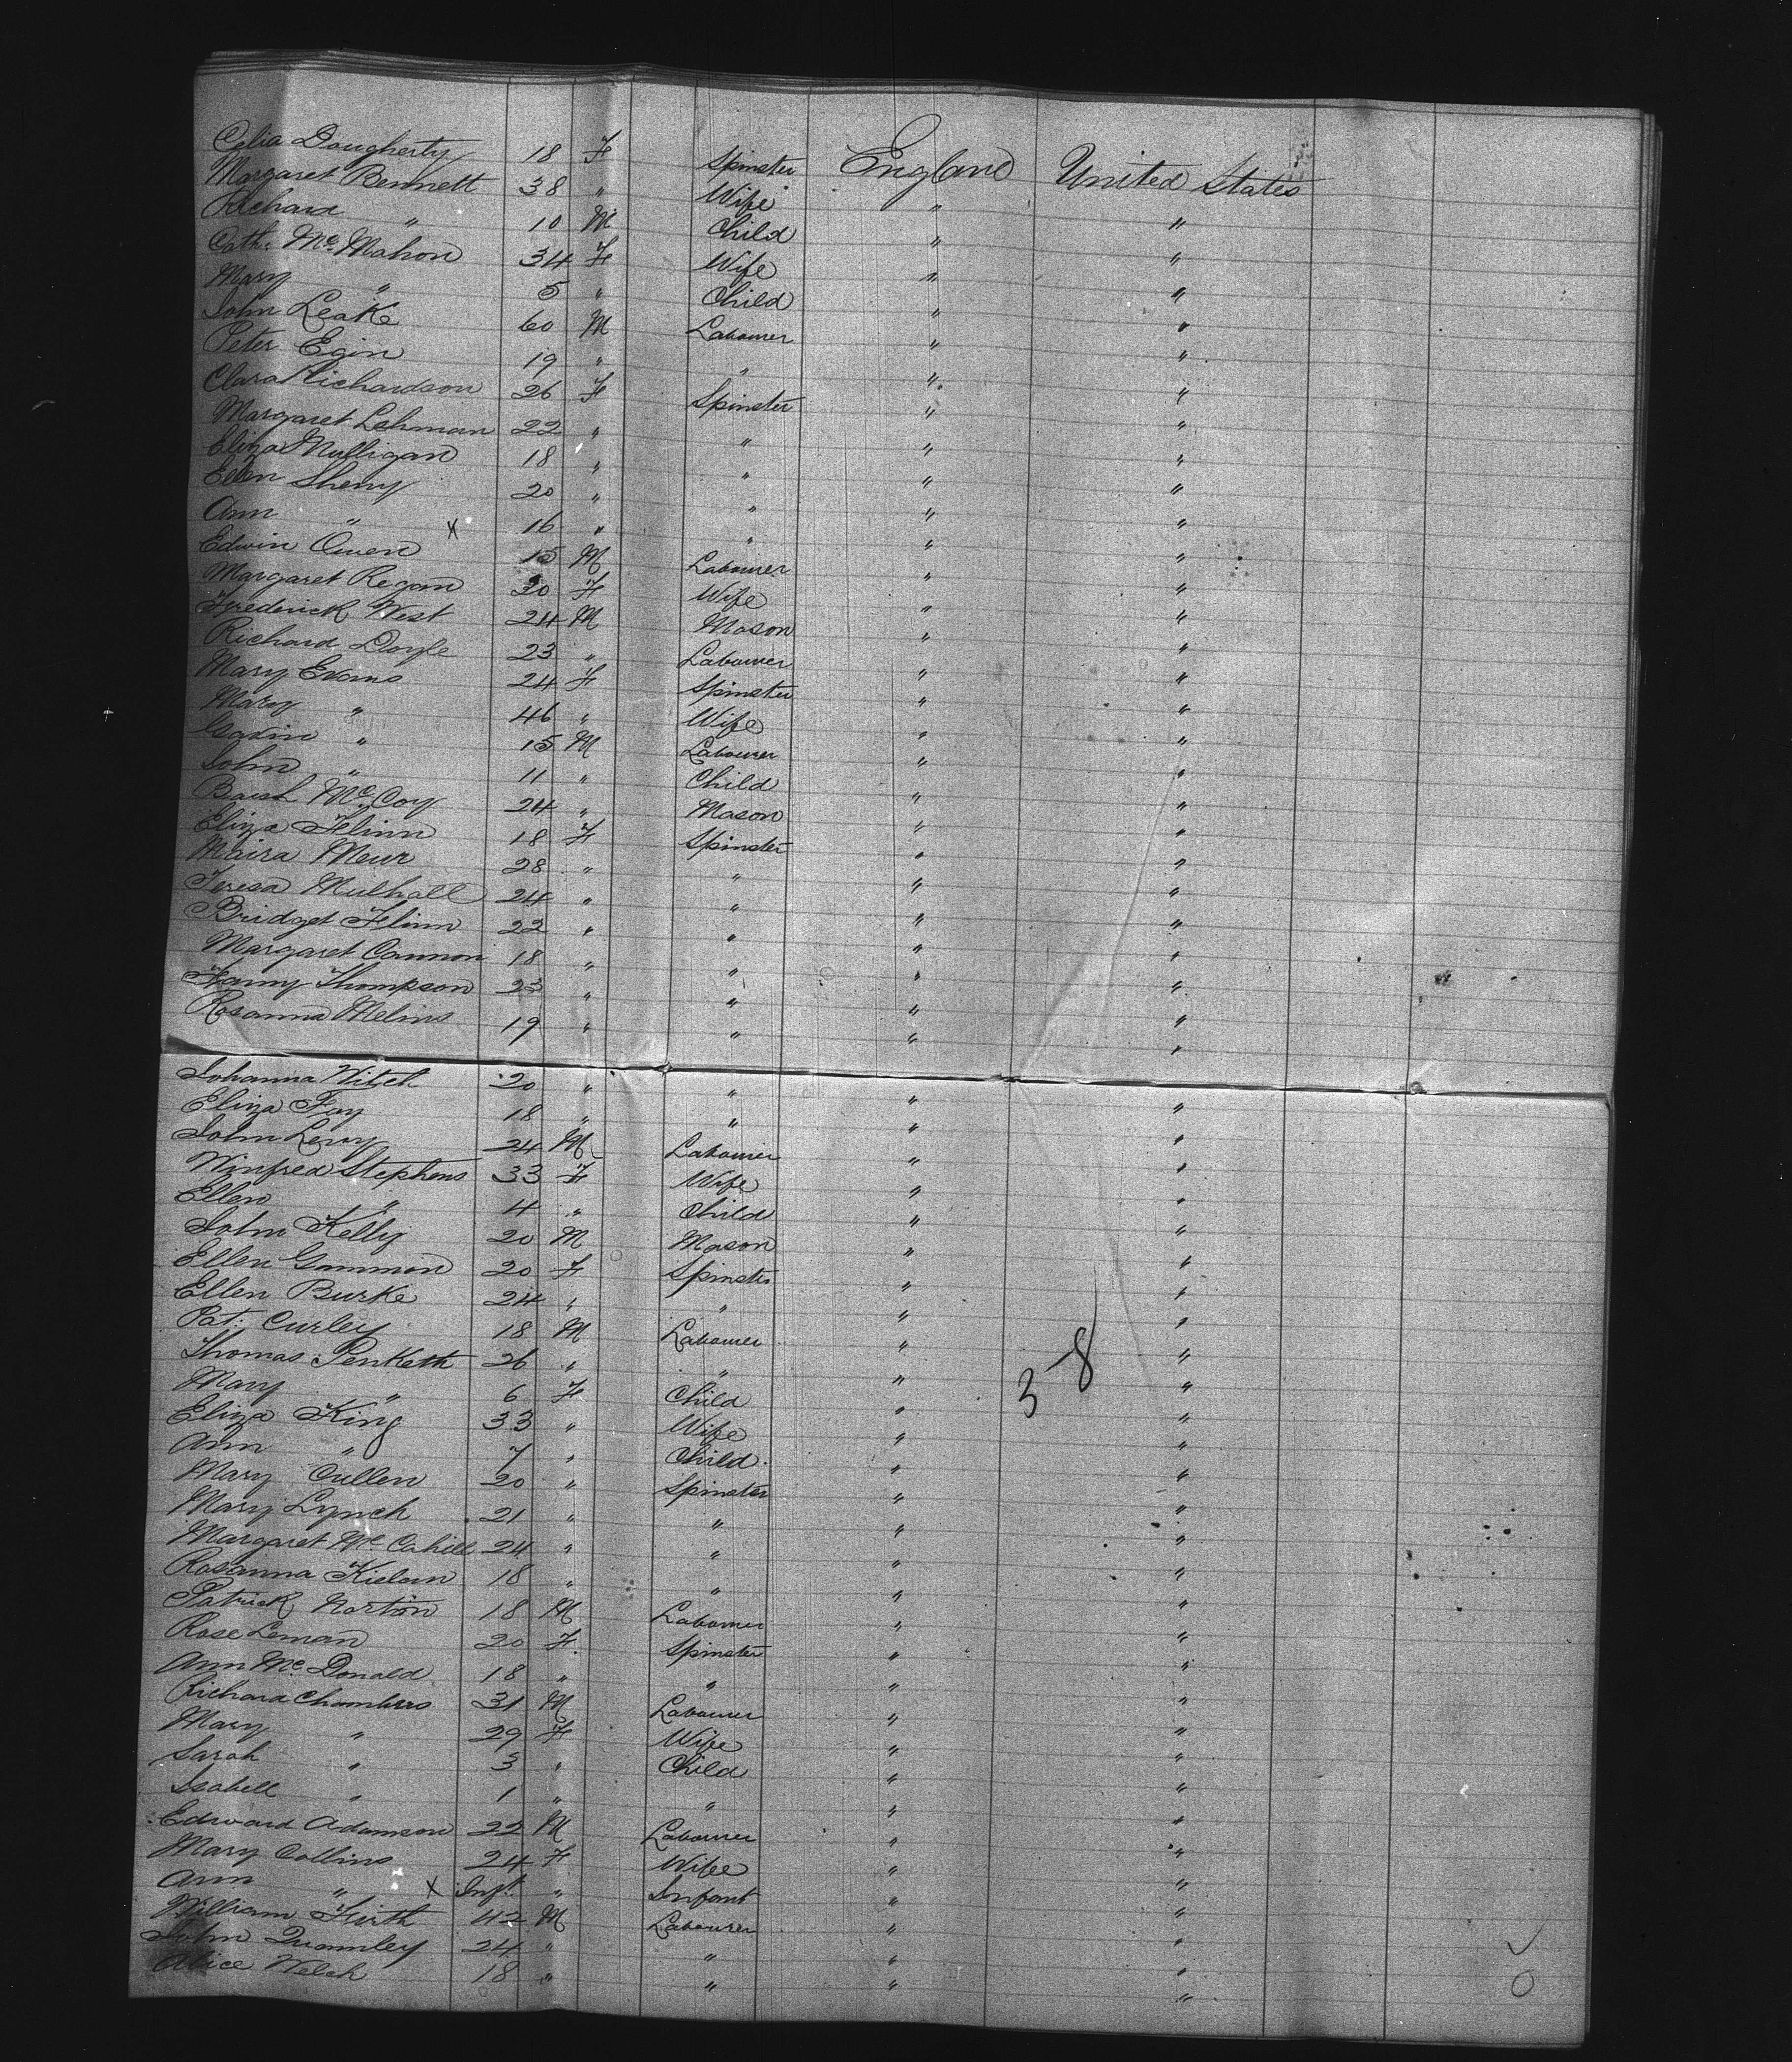 Celia Dougherty 18 F Spinster England United States
Margaret Bennett 38 " Wife " "
Richard " 10 M Child " "
Cath: Mc Mahon 34 F Wife " "
Mary " 5 " Child " "
John Leake 60 M Labourer " "
Peter Egin 19 " " " "
Clara Richardson 26 F Spinster " "
Margaret Lehman 22 " " " "
Eliza Mulligan 18 " " " "
Ellen Sherry 20 " " " "
Ann " X 16 " " " "
Edwin Owen 15 M Labourer " "
Margaret Regan 20 F Wife " "
Frederick West 24 M Mason " "
Richard Doyle 23 " Labourer " "
Mary Evans 24 F Spinster " "
Mary " 46 " Wife " "
" 15 M Labourer " "
John " 11 " Child " "
Mc Coy 24 " Mason " "
Eliza Flinn 18 F Spinster " "
Maira Meur 28 " " " "
Teresa Mulhall 24 " " " "
Bridget Flinn 22 " " " "
Margaret Cannon 18 " " " "
Fanny Thompson 23 " " " "
Rosanna Melins 19 " " " "
Johanna Witch 20 " " " "
Eliza Fay 18 " " " "
John Leroy 24 M Labourer " "
Winfred Stephens 33 F Wife " "
Ellen " 4 " Child " "
John Kelly 20 M Mason " "
Ellen Gammon 20 F Spinster " "
Ellen Burke 24 " " " "
Pat: Curley 18 M Labourer " "
Thomas Penketh 26 " " " 3-8 "
Mary " 6 F Child " "
Eliza King 33 " Wife " "
Ann " 7 " Child " "
Mary Cullen 20 " Spinster " "
Mary Lynch 21 " " " "
Margaret Mc Cahill 24 " " " "
Rosanna Kielam 18 " " " "
Patrick Norton 18 M Labourer " "
Rose Leman 20 F Spinster " "
Ann Mc Donald 18 " " " "
Richard Chambers 31 M Labourer " "
Mary " 29 F Wife " "
Sarah " 3 " Child " "
Isabell " 1 " " " "
Edward Adamson 22 M Labourer " "
Mary Collins 24 F Wife " "
Ann " X Inft " Infant " "
William Firth 42 M Labourer " "
John 24 " " " "
Alice Welch 18 " " " "